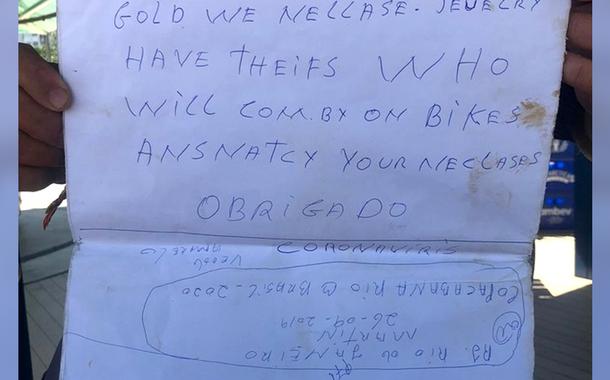 GOLD WE NELLASE. JEWELRY
HAVE THEIFS WHO
WILL COM.BY ON BIKES
ANSNATCY YOUR NECLASES
OBRIGADO
CORONAVIRIS
COPACABANA RIO BRASIL - 2020
26-09-2019
MARTIN
RJ. RIO de JANEIRO